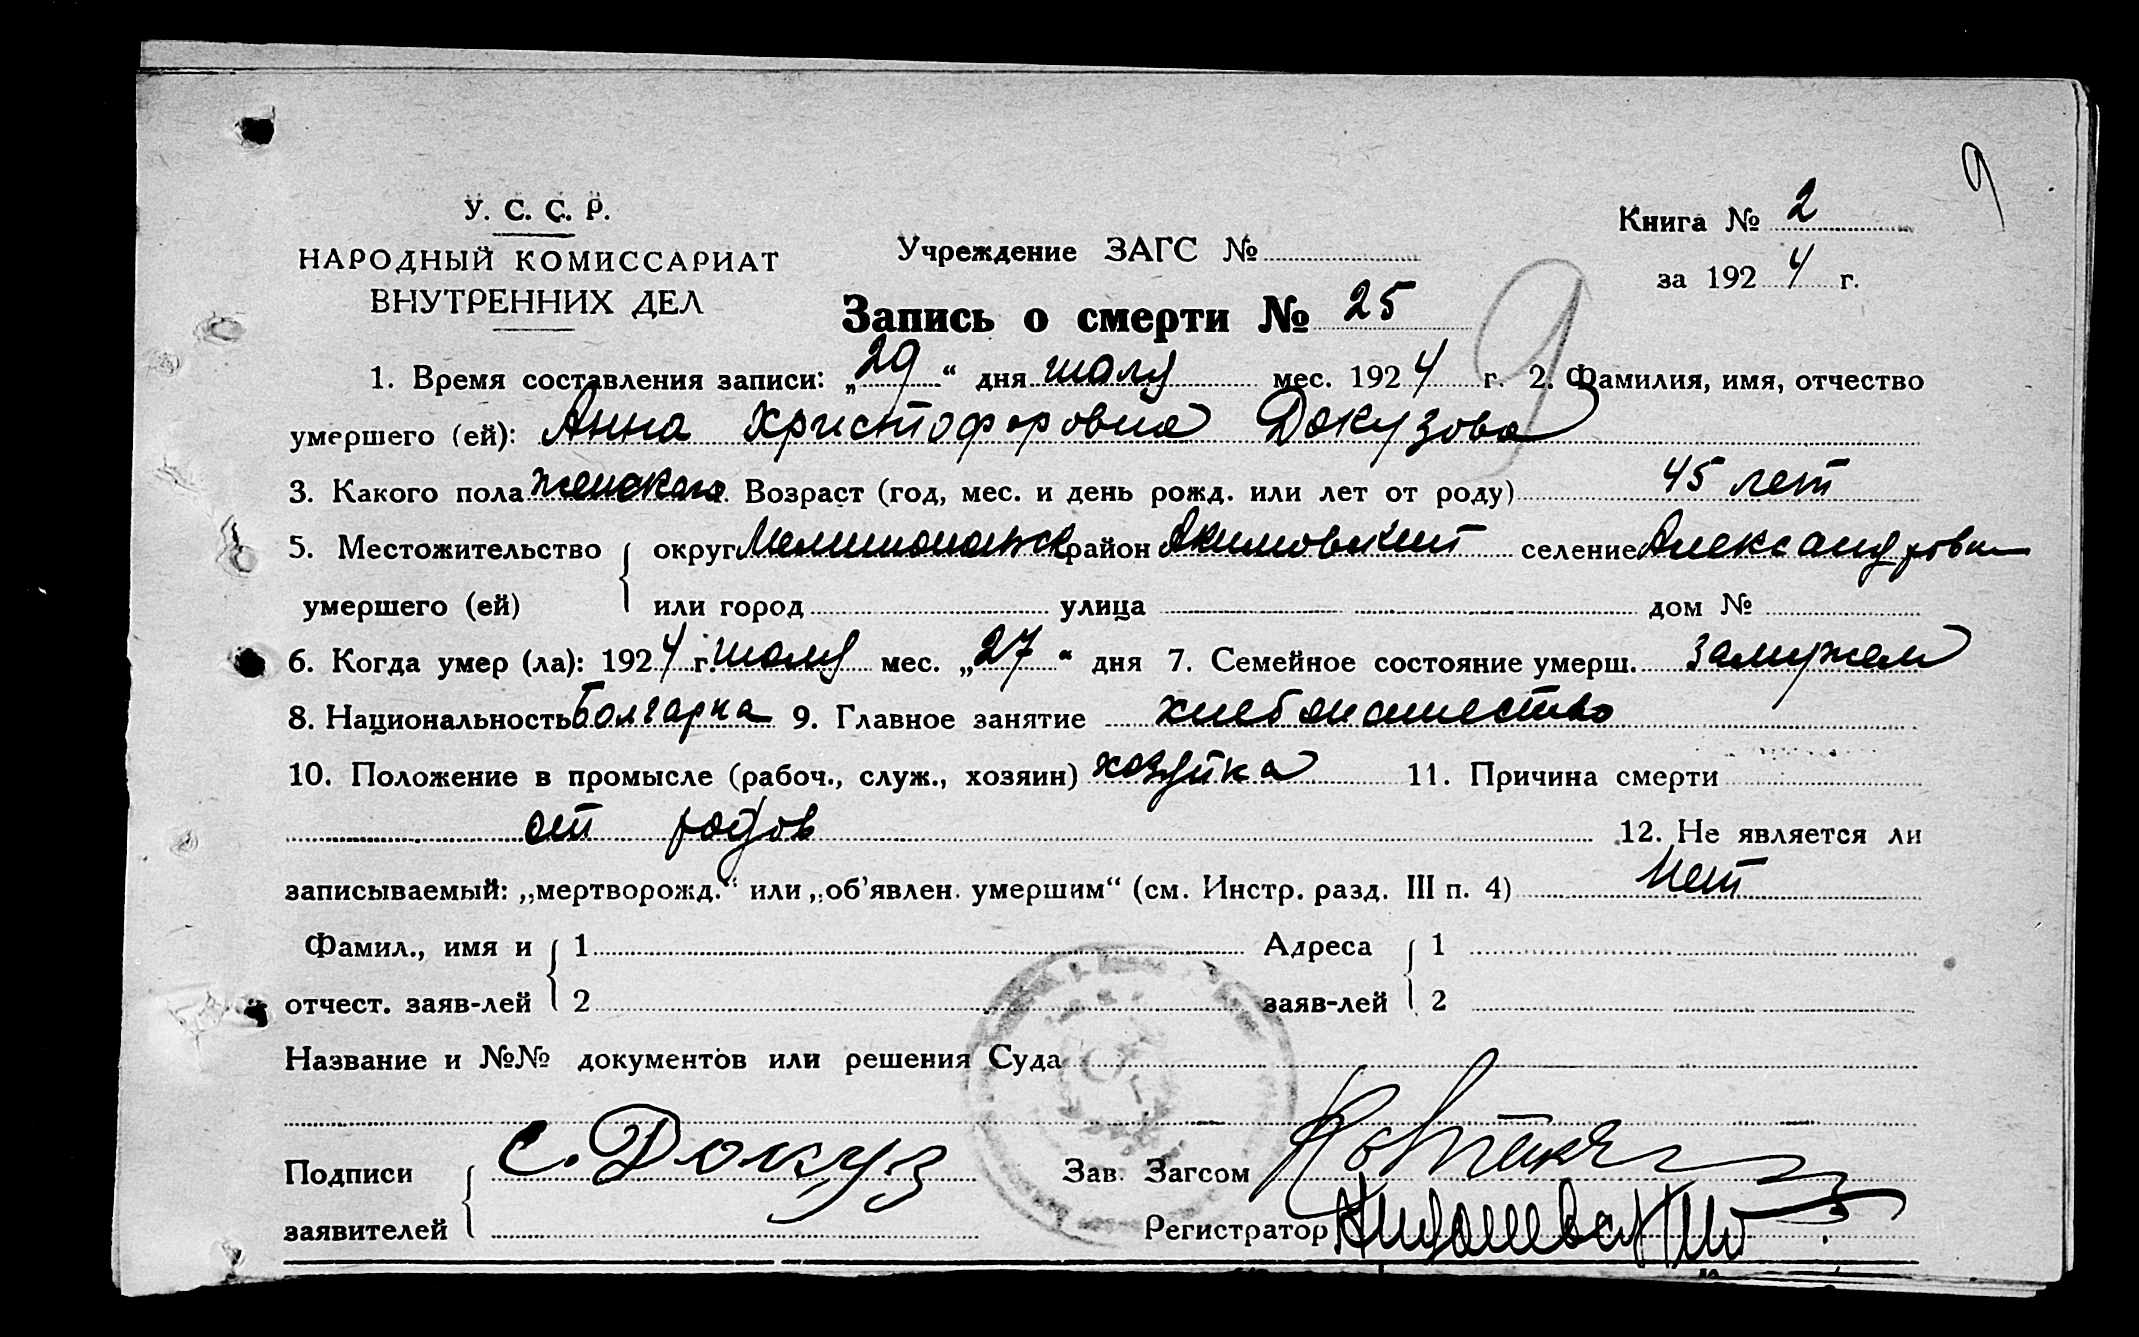 9
У. С. С. Р.
НАРОДНЫЙ КОМИССАРИАТ
ВНУТРЕННИХ ДЕЛ
Учреждение ЗАГС №
Книга № 2
за 1924 г.
Запись о смерти № 25
9
1. Время составления записи: „29“ дня июля мес. 1924 г. 2. Фамилия, имя, отчество
умершего (ей): Анна Христофоровна Докузова
3. Какого пола женского. Возраст (год, мес. и день рожд. или лет от роду) 45 лет
5. Местожительство округ Мелитопольск район Акимовский селение Александровка
умершего (ей) или город улица дом №
6. Когда умер (ла): 1924 г. июля мес. „27“ дня 7. Семейное состояние умерш. замужем
8. Национальность Болгарка 9. Главное занятие хлебопашество
10. Положение в промысле (рабоч., служ., хозяин) хозяйка 11. Причина смерти
от родов 12. Не является ли
записываемый: „мертворожд.“ или „об’явлен. умершим“ (см. Инстр. разд. III п. 4) Нет
Фамил., имя и 1 Адреса 1
отчест. заяв-лей 2 заяв-лей 2
Название и №№ документов или решения Суда
Подписи С. Докуз Зав. Загсом
заявителей Регистратор